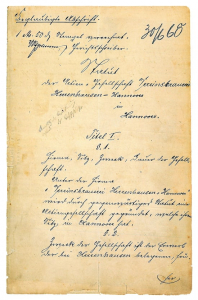 Beglaubigte Abschrift.
30/6 60
1 M. 50 Stempel verwendet.
Gerichtsschreiber.
Statut
der Aktien-Gesellschaft Vereinsbrauerei
Herrenhausen-Hannover
in
Hannover.
Titel I.
§. 1.
Firma, Sitz, Zweck, Dauer der Gesell-
schaft.
Unter der Firma
„Vereinsbrauerei Herrenhausen-Hannover
wird durch gegenwärtiges Statut eine
Actiengesellschaft gegründet, welche ihren
Sitz in Hannover hat.
§. 2.
Zweck der Gesellschaft ist der Erwerb
der bei Herrenhausen belegenen,